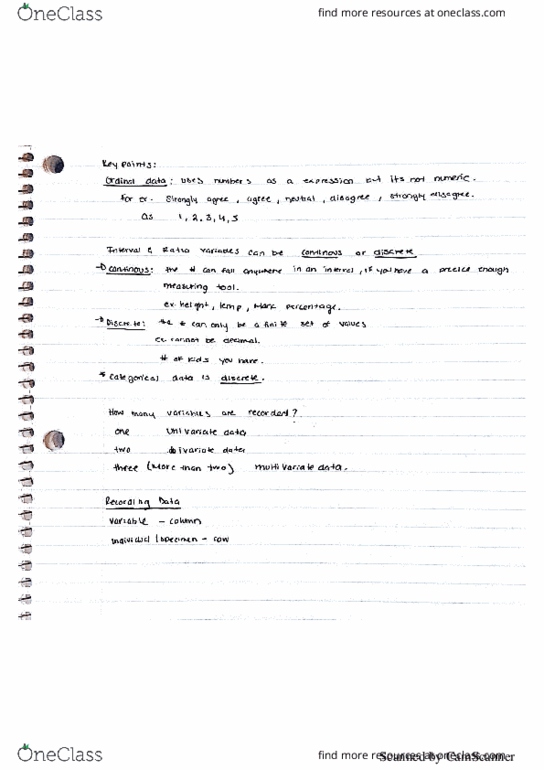 OneClass
find more resources at oneclass.com
Key points:
Ordinal data: uses numbers as a expression but its not numeric.
For ex. Strongly agree, agree, neutral, disagree, strongly disagree.
as 1, 2, 3, 4, 5
Interval & Ratio variables can be continous or discrete
→ continous: the # can fall anywhere in an interval, if you have a precise enough
measuring tool.
ex. height, temp, Mark percentage.
→ Discrete: the # can only be a finite set of values
ex. cannot be decimal.
# of kids you have.
* categorical data is discrete.
How many variables are recorded?
one univariate data
two bivariate data
three (More than two) multivariate data.
Recording Data
variable - column
individual / specimen - row
OneClass
find more resources at oneclass.com
Scanned by CamScanner